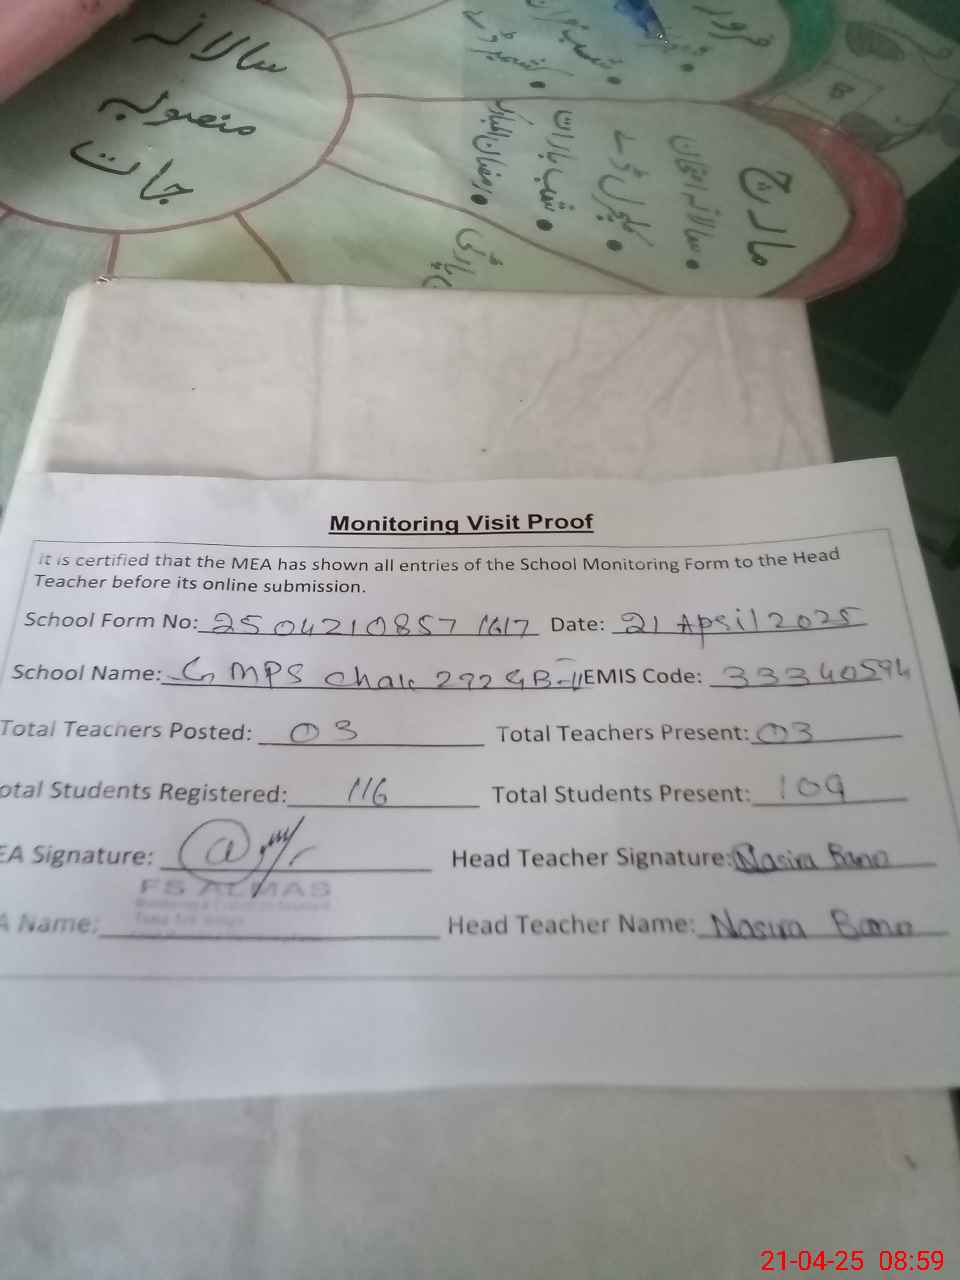 سالانہ
منصوبہ
جات
مارچ
• سالانہ امتحان
• کلچرل ڈے
• شب بارات
• رمضان المبارک
پارٹی
Monitoring Visit Proof
It is certified that the MEA has shown all entries of the School Monitoring Form to the Head
Teacher before its online submission.
School Form No: 2504210857 1617 Date: 21 April 2025
School Name: G MPS Chak 292 GB-II EMIS Code: 33340594
Total Teachers Posted: 03 Total Teachers Present: 03
otal Students Registered: 116 Total Students Present: 109
EA Signature: Head Teacher Signature: Nasira Bano
FS ALMAS
A Name: Head Teacher Name: Nasira Bano
21-04-25 08:59